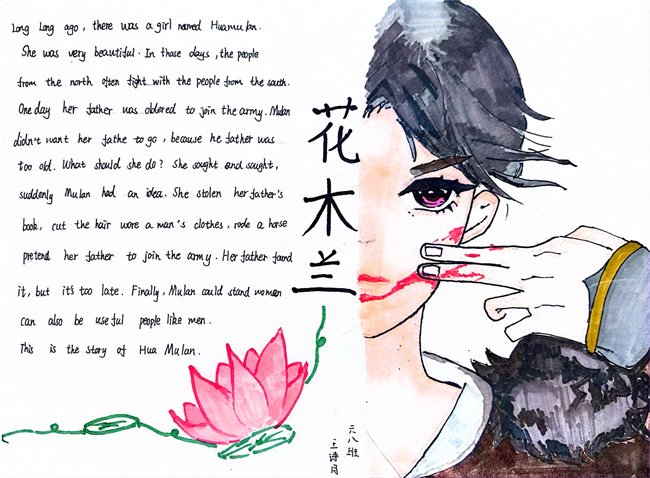 Long Long ago, there was a girl named Huamulan.
She was very beautiful. In those days, the people
from the north often fight with the people from the south.
One day her father was oldered to join the army. Mulan
didn't want her fathe to go, because he father was
too old. What should she do? She sought and sought,
suddenly Mulan had an idea. She stolen her father's
book, cut the hair wore a man's clothes, rode a horse
pretend her father to join the army. Her father found
it, but it's too late. Finally, Mulan could stand women
can also be useful people like men.
This is the story of Hua Mulan.
花木兰
二八班
王诗月